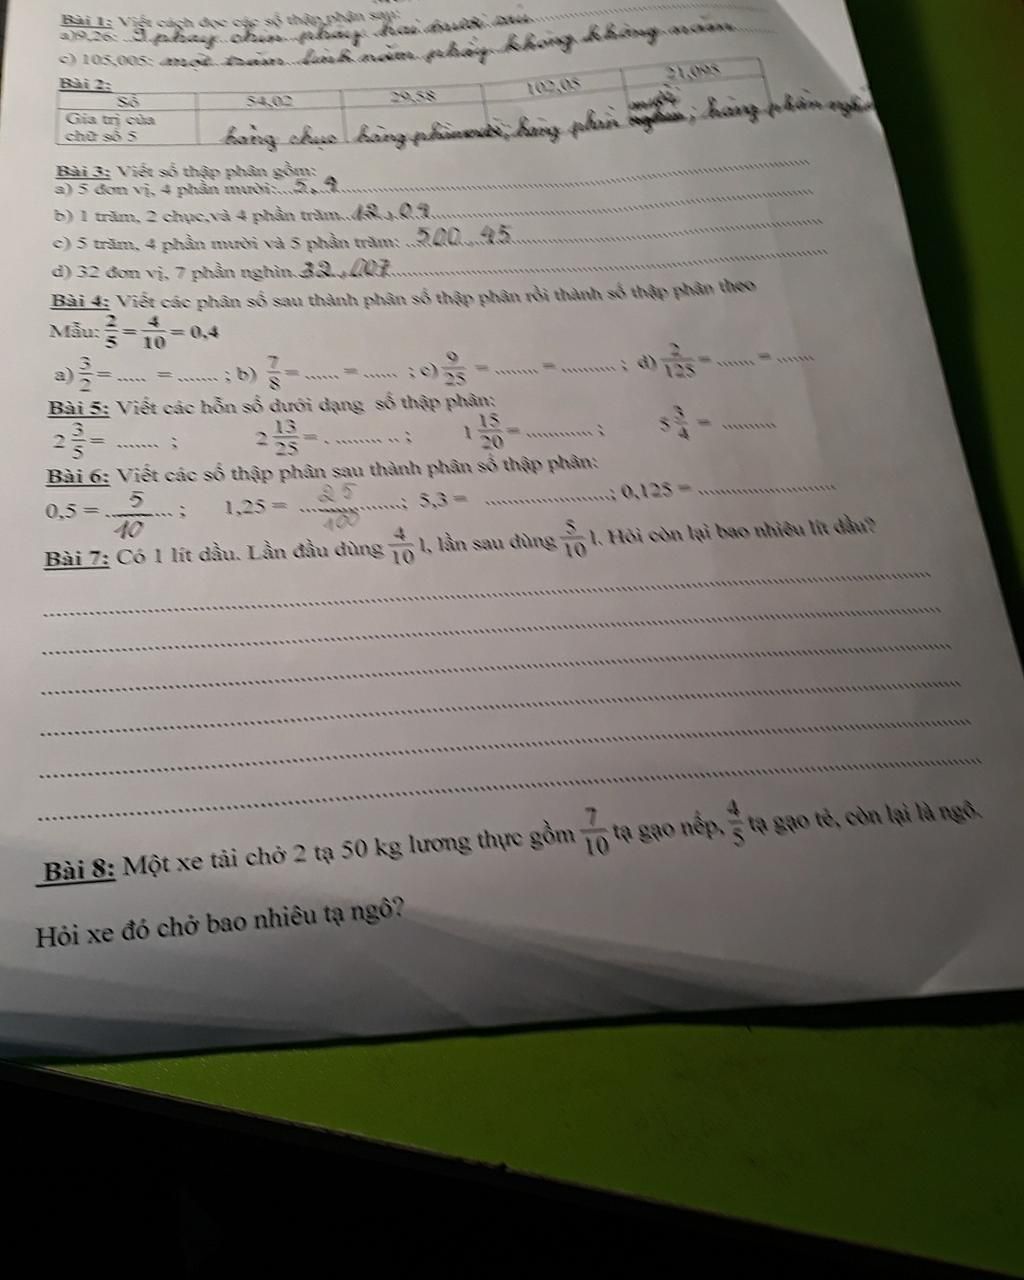 Bài 1: Viết cách đọc các số thập phân sau:
a)9,26: 9 phay chín phẩy hai mươi sáu
c) 105,005: một trăm linh năm phẩy không không năm
Bài 2:
Số 54,02 29,58 102,05 21,095
Giá trị của chữ số 5 hàng chục hàng phần mười; hàng phần nghìn; hàng phần nghìn
Bài 3: Viết số thập phân gồm:
a) 5 đơn vị, 4 phần mười:...5,4
b) 1 trăm, 2 chục,và 4 phần trăm..12,04
c) 5 trăm, 4 phần mười và 5 phần trăm: ..500,45
d) 32 đơn vị, 7 phần nghìn.32,007
Bài 4: Viết các phân số sau thành phân số thập phân rồi thành số thập phân theo
Mẫu: 2/5 = 4/10 = 0,4
a) 3/2 = ..... = ....... ; b) 7/8 = ...... = ...... ; c) 9/25 = ........ = .......... ; d) 2/125 = ....... = .......
Bài 5: Viết các hỗn số dưới dạng số thập phân:
2 3/5 = ....... ; 2 13/25 = . ......... .. ; 1 15/20 = ............. ; 5 3/4 = ..........
Bài 6: Viết các số thập phân sau thành phân số thập phân:
0,5 = 5/10 ; 1,25 = 25/100 ; 5,3 = ........................; 0,125 = ..........................
Bài 7: Có 1 lít dầu. Lần đầu dùng 4/10 l, lần sau dùng 5/10 l. Hỏi còn lại bao nhiêu lít dầu?
Bài 8: Một xe tải chở 2 tạ 50 kg lương thực gồm 7/10 tạ gạo nếp, 4/5 tạ gạo tẻ, còn lại là ngô.
Hỏi xe đó chở bao nhiêu tạ ngô?